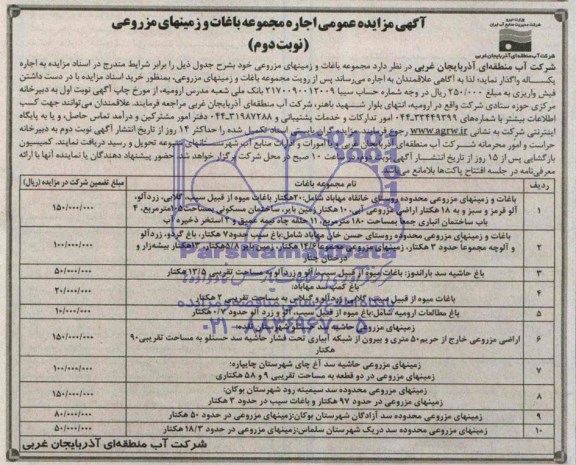 آگهی مزایده عمومی اجاره مجموعه باغات و زمینهای مزروعی
(نوبت دوم)
شرکت آب منطقه‌ای آذربایجان غربی
شرکت آب منطقه‌ای آذربایجان غربی در نظر دارد مجموعه باغات و زمینهای مزروعی خود بشرح جدول ذیل را برابر شرایط مندرج در اسناد مزایده به اجاره
یکساله واگذار نماید؛ لذا به آگاهی علاقمندان به اجاره می‌رساند پس از رویت مجموعه باغات و زمینهای مزروعی، بمنظور خرید اسناد مزایده با در دست داشتن
فیش واریزی به مبلغ ۲۵۰/۰۰۰ ریال در وجه شماره حساب سیبا ۲۱۷۰۰۹۰۰۱۲۰۰۹ بانک ملی شعبه مدرس ارومیه، از مورخ چاپ آگهی نوبت اول به دبیرخانه
مرکزی حوزه ستادی شرکت واقع در ارومیه، انتهای بلوار شهید باهنر، شرکت آب منطقه‌ای آذربایجان غربی مراجعه فرمایند. علاقمندان می‌توانند جهت کسب
اطلاعات بیشتر با شماره‌های ۰۴۴-۳۳۴۴۹۳۹۹ امور تدارکات و خدمات پشتیبانی و ۰۴۴-۳۱۹۸۷۲۸۸ دفتر امور مشترکین و درآمد تماس حاصل، و یا به پایگاه
اینترنتی شرکت به نشانی www.agrw.ir رجوع فرمایند. مزایده گران بایستی اسناد تکمیل شده را حداکثر ۱۴ روز از تاریخ انتشار آگهی نوبت دوم به دبیرخانه
حراست و امور محرمانه شرکت آب منطقه‌ای آذربایجان غربی یا امورات و ادارات منابع آب شهرستانهای مجموعه تحویل و رسید دریافت نمایند. کمیسیون
بازگشایی پس از ۱۵ روز از تاریخ انتشار آگهی نوبت دوم در ساعت ۱۰ صبح در محل شرکت برگزار خواهد شد. حضور پیشنهاد دهندگان یا نماینده آنها با ارائه
معرفی‌نامه در جلسه افتتاح پاکت‌ها بلامانع می‌باشد.
ردیف نام مجموعه باغات مبلغ تضمین شرکت در مزایده (ریال)
۱ باغات و زمینهای مزروعی محدوده روستای خانقاه مهاباد شامل: ۲۰هکتار باغات میوه از قبیل سیب، گلابی، زردآلو،
آلو قرمز و سبز و به ۱۸ هکتار اراضی مزروعی آبی، ۱۰ هکتار زمین بایر، ساختمان مسکونی بمساحت ۱۰۵مترمربع، ۴
باب ساختمان انباری جمعاً بمساحت ۱۸۰ مترمربع، ۱۱ حلقه چاه نیمه عمیق و ۳ استخر ذخیره آب ۱۵۰/۰۰۰/۰۰۰
۲ باغات و زمینهای مزروعی محدوده روستای حسن خان مهاباد شامل: باغ سیب حدود ۷ هکتار، باغ گردو، زردآلو
و آلوچه مجموعاً حدود ۳ هکتار، زمینهای مزروعی مجموعاً ۱۴/۶ هکتار، زمین بایر ۵/۸هکتار، ۱۳هکتار بیشه‌زار و
درختان چنار ۱۰۰/۰۰۰/۰۰۰
۳ باغ حاشیه سد باراندوز: باغات میوه از قبیل سیب، آلو و زردآلو به مساحت تقریبی ۱۳/۵ هکتار ۵۰/۰۰۰/۰۰۰
۴ باغ کمپ سد مهاباد:
باغات میوه از قبیل سیب، گلابی، زردآلو و گیلاس به مساحت تقریبی ۲ هکتار ۲۰/۰۰۰/۰۰۰
۵ باغ مطالعات ارومیه شامل: باغ میوه از قبیل سیب، آلو و زرد آلو حدود ۰/۷ هکتار ۱۰/۰۰۰/۰۰۰
۶ زمینهای مزروعی حاشیه سد حسنلو شهرستان نقده:
اراضی مزروعی خارج از حریم ۵۰ متری و بیرون از شبکه آبیاری تحت فشار حاشیه سد حسنلو به مساحت تقریبی ۹۰
هکتار ۱۵۰/۰۰۰/۰۰۰
۷ زمینهای مزروعی حاشیه سد آغ چای شهرستان چایپاره:
زمینهای مزروعی در دو قطعه به مساحت تقریبی ۹ و ۵۸ هکتاری ۱۰۰/۰۰۰/۰۰۰
۸ زمینهای مزروعی محدوده سد سیمینه رود شهرستان بوکان:
زمینهای مزروعی در حدود ۹۷ هکتار و باغات سیب در حدود ۳ هکتار ۱۵۰/۰۰۰/۰۰۰
۹ زمینهای مزروعی محدوده سد آزادگان شهرستان بوکان: زمینهای مزروعی در حدود ۵۰ هکتار ۸۰/۰۰۰/۰۰۰
۱۰ زمینهای مزروعی محدوده سد دریک شهرستان سلماس: زمینهای مزروعی در حدود ۱۸/۳ هکتار ۵۰/۰۰۰/۰۰۰
شرکت آب منطقه‌ای آذربایجان غربی
ParsNamadData
۰۲۱-۸۸۳۴۹۶۷۰-۵